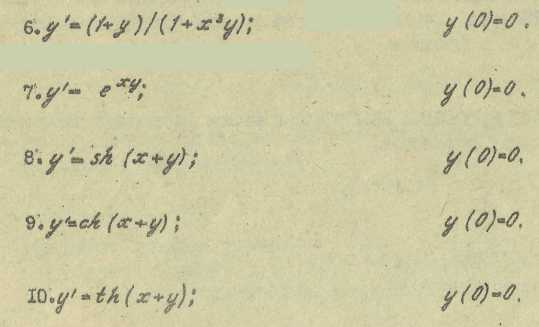 6. y' = (1+y)/(1+x³y); y(0)=0.
7. y' = e^{xy}; y(0)=0.
8. y' = sh (x+y); y(0)=0.
9. y' = ch (x+y); y(0)=0.
10. y' = th (x+y); y(0)=0.